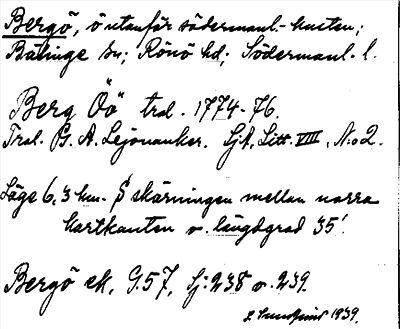 Bergö, ö utanför södermanl.-kusten;
Bälinge sn; Rönö hd; Södermanl. l.
Berg Öö tral. 1774-76.
Tral. P. A. Lejonanker. Sj.A. Litt. VIII, N:o 2.
Läge 6,3 km. S skärningen mellan norra
kartkanten o. längdgrad 35'.
Bergö ek. G.57, Sj:238 o. 239.
1939.